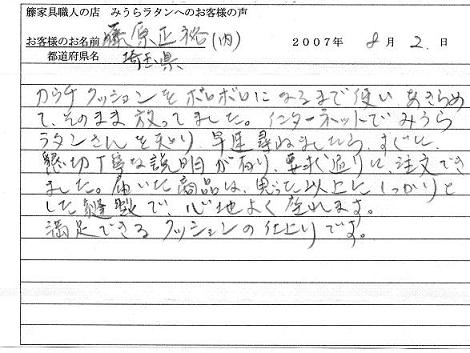 籐家具職人の店　みうらラタンへのお客様の声
お客様のお名前 藤原正裕(内)　2007年 8月 2日
都道府県名 埼玉県
カウチクッションをボロボロになるまで使い、あきらめ
て、そのまま放ってました。インターネットでみうら
ラタンさんを知り、早速尋ねましたら、すぐに
懇切丁寧な説明が有り、要求通りに、注文でき
ました。届いた商品は、思った以上にしっかりと
した縫製で、心地よく座れます。
満足できるクッションの仕上りです。